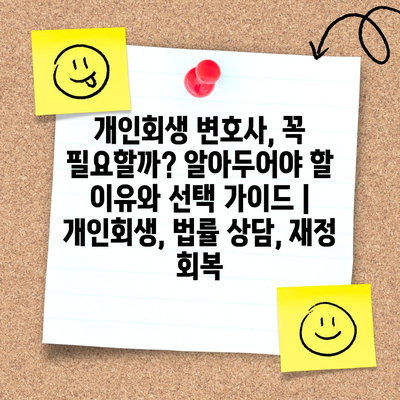 개인회생 변호사, 꼭
필요할까? 알아두어야 할
이유와 선택 가이드 |
개인회생, 법률 상담, 재정
회복